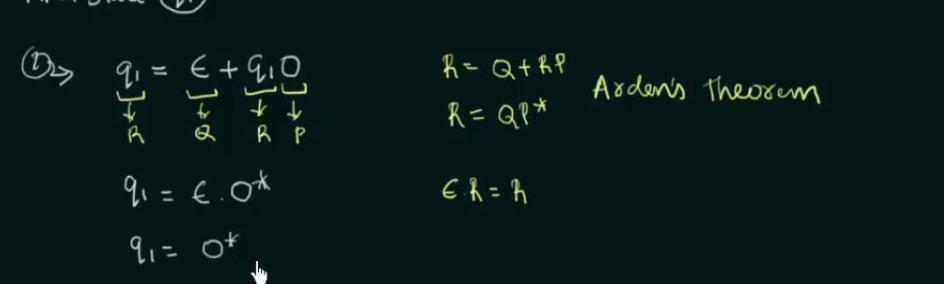 ①→ q₁ = ε + q₁0
R Q R P
q₁ = ε.0*
q₁ = 0*
R = Q + RP
R = QP*
Arden's Theorem
ε.R = R